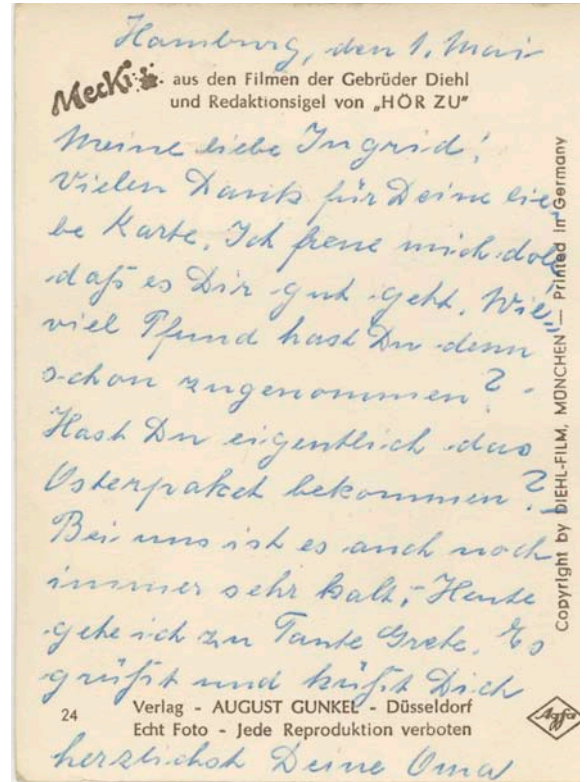 Hamburg, den 1. Mai
Mecki aus den Filmen der Gebrüder Diehl
und Redaktionsigel von „HÖR ZU"
Meine liebe Ingrid!
Vielen Dank für Deine lie-
be Karte. Ich freue mich doll
daß es Dir gut geht. Wie-
viel Pfund hast Du denn
schon zugenommen? -
Hast Du eigentlich das
Osterpaket bekommen? -
Bei uns ist es auch noch
immer sehr kalt, - Heute
gehe ich zu Tante Grete. Es
grüßt und küßt Dich
24 Verlag - AUGUST GUNKEL - Düsseldorf
Echt Foto - Jede Reproduktion verboten
herzlichst Deine Oma
Copyright by DIEHL-FILM, MÜNCHEN — Printed in Germany
Agfa